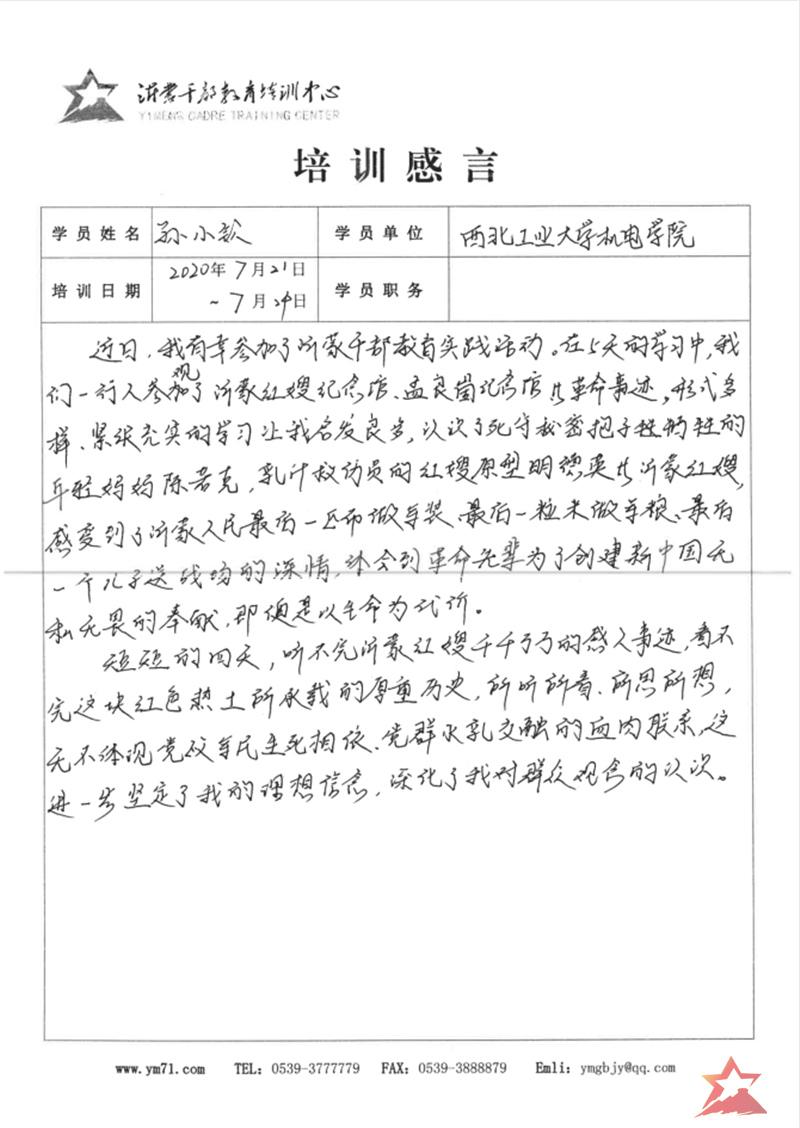 沂蒙干部教育培训中心
YIMENG CADRE TRAINING CENTER
培训感言
学员姓名 孙小歆 学员单位 西北工业大学机电学院
培训日期 2020年7月21日 ~7月24日 学员职务
近日,我有幸参加了沂蒙干部教育实践活动。在5天的学习中,我
们一行人参观了沂蒙红嫂纪念馆、孟良崮纪念馆 革命事迹,形式多
样、紧张充实的学习让我启发良多,认识了死守秘密抱子牺牲的
年轻妈妈陈若克,乳汁救伤员的红嫂原型明德英 沂蒙红嫂,
感受到了沂蒙人民最后一匹布做军装、最后一粒米做军粮、最后
一个儿子送战场的深情,体会到革命先辈为了创建新中国无
私无畏的奉献,即便是以生命为代价。
短短的四天,听不完沂蒙红嫂千千万万的感人事迹,看不
完这块红色热土所承载的厚重历史,所听所看、所思所想,
无不体现党政军民生死相依、党群水乳交融的血肉联系,这
进一步坚定了我的理想信念,深化了我对群众观念的认识。
www.ym71.com TEL: 0539-3777779 FAX: 0539-3888879 Emli: ymgbjy@qq.com